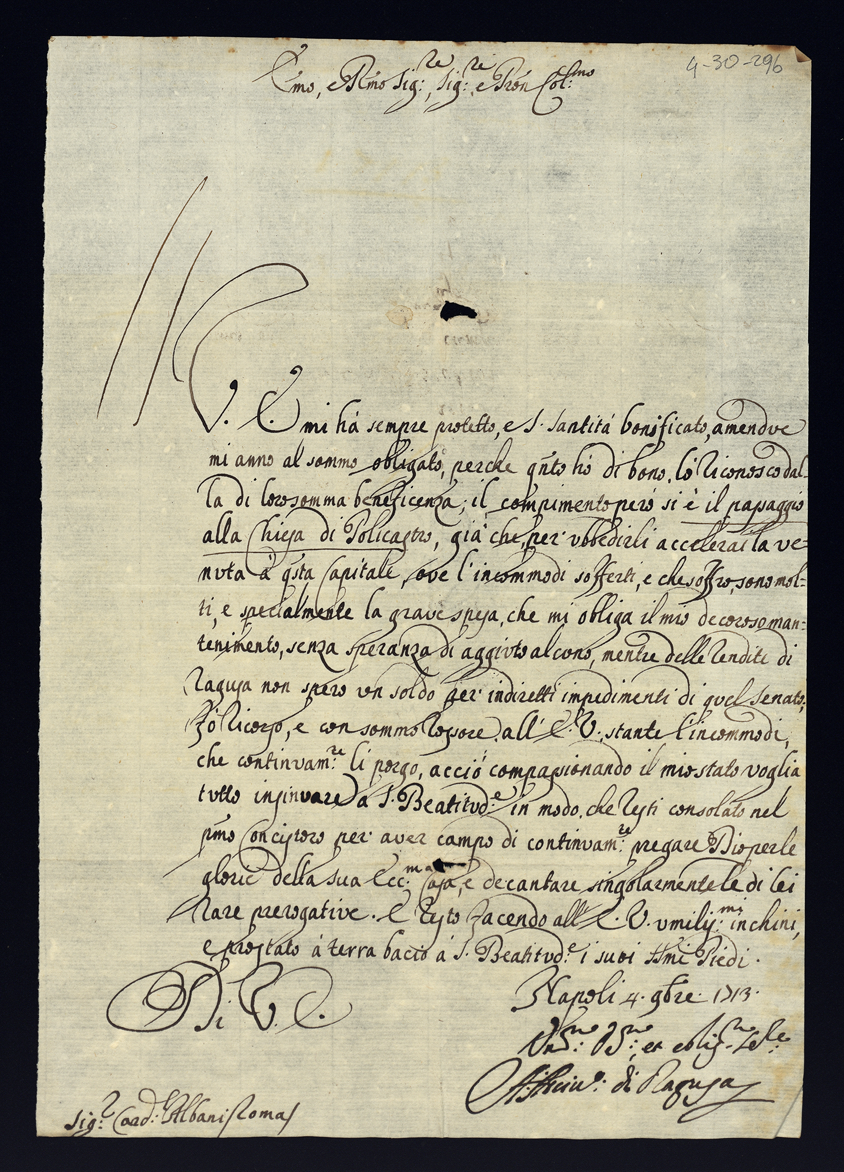 4-30-296
Emo, e Rmo Sig:re, Sig:re e Pron Col:mo
V. E. mi há sempre protetto, e S. Santitá bonificato, amendue
mi anno al sommo obligato, perche qnto hó di bono, ló riconosco dal-
la di loro somma beneficenza; il compimento peró si é il passaggio
alla Chiesa di Policastro, giá che per ubbedirli accelerai la ve=
nuta á qsta Capitale, ove l'incommodi sofferti, e che soffro, sono mol=
ti, e specialmente la grave spesa, che mi obliga il mio decoroso man=
tenimento, senza speranza di aggiuto alcuno, mentre delle rendite di
Ragusa non spero un soldo per indiretti impedimenti di quel Senato,
Fó ricorso, e con sommo rossore all' E. V. stante l'incommodi,
che continuam:te li porgo, acció compassionando il mio stato voglia
tutto insinuare á S. Beatitud:e in modo, che resti consolato nel
pmo Concistoro per aver campo di continuam:te pregare Dio per le
glorie della sua Ecc:ma Casa, e decantare singolarmente le di lei
rare prerogative. E resto facendo all' E. V. umilis:mi inchini,
e prostato á terra bacio á S. Beatitud:e i suoi SSmi Piedi.
Di V. E.
Napoli 4. 9bre. 1713.
et oblig:mo
di Ragusa
Sig:r Card: Albani Roma